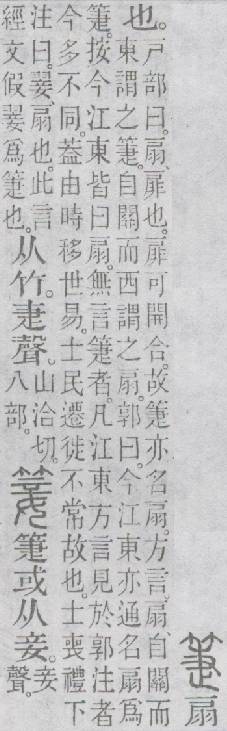 箑 扇
也。
戶部曰。扇、扉也。扉可開合。故箑亦名扇。方言、扇、自關而
東謂之箑。自關而西謂之扇。郭曰。今江東亦通名扇爲
箑。按今江東皆曰扇。無言箑者。凡江東方言見於郭注者
今多不同。葢由時移世易。士民遷徙不常故也。士喪禮下
注曰。翣、扇也。此言
經文假翣爲箑也。
从竹。疌聲。
山洽切。
八部。
𥰢 箑或从妾。
妾
聲。